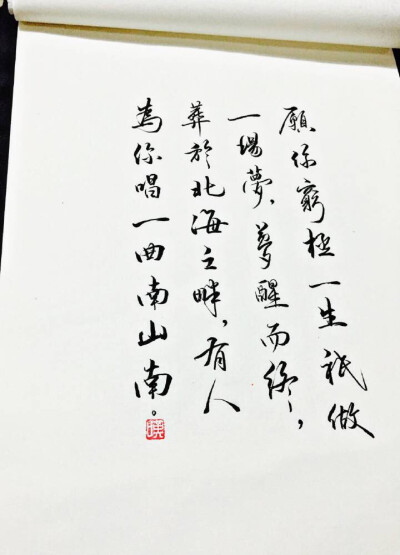 願你窮極一生祇做
一場夢、夢醒而終,
葬於北海之畔,有人
為你唱一曲南山南。